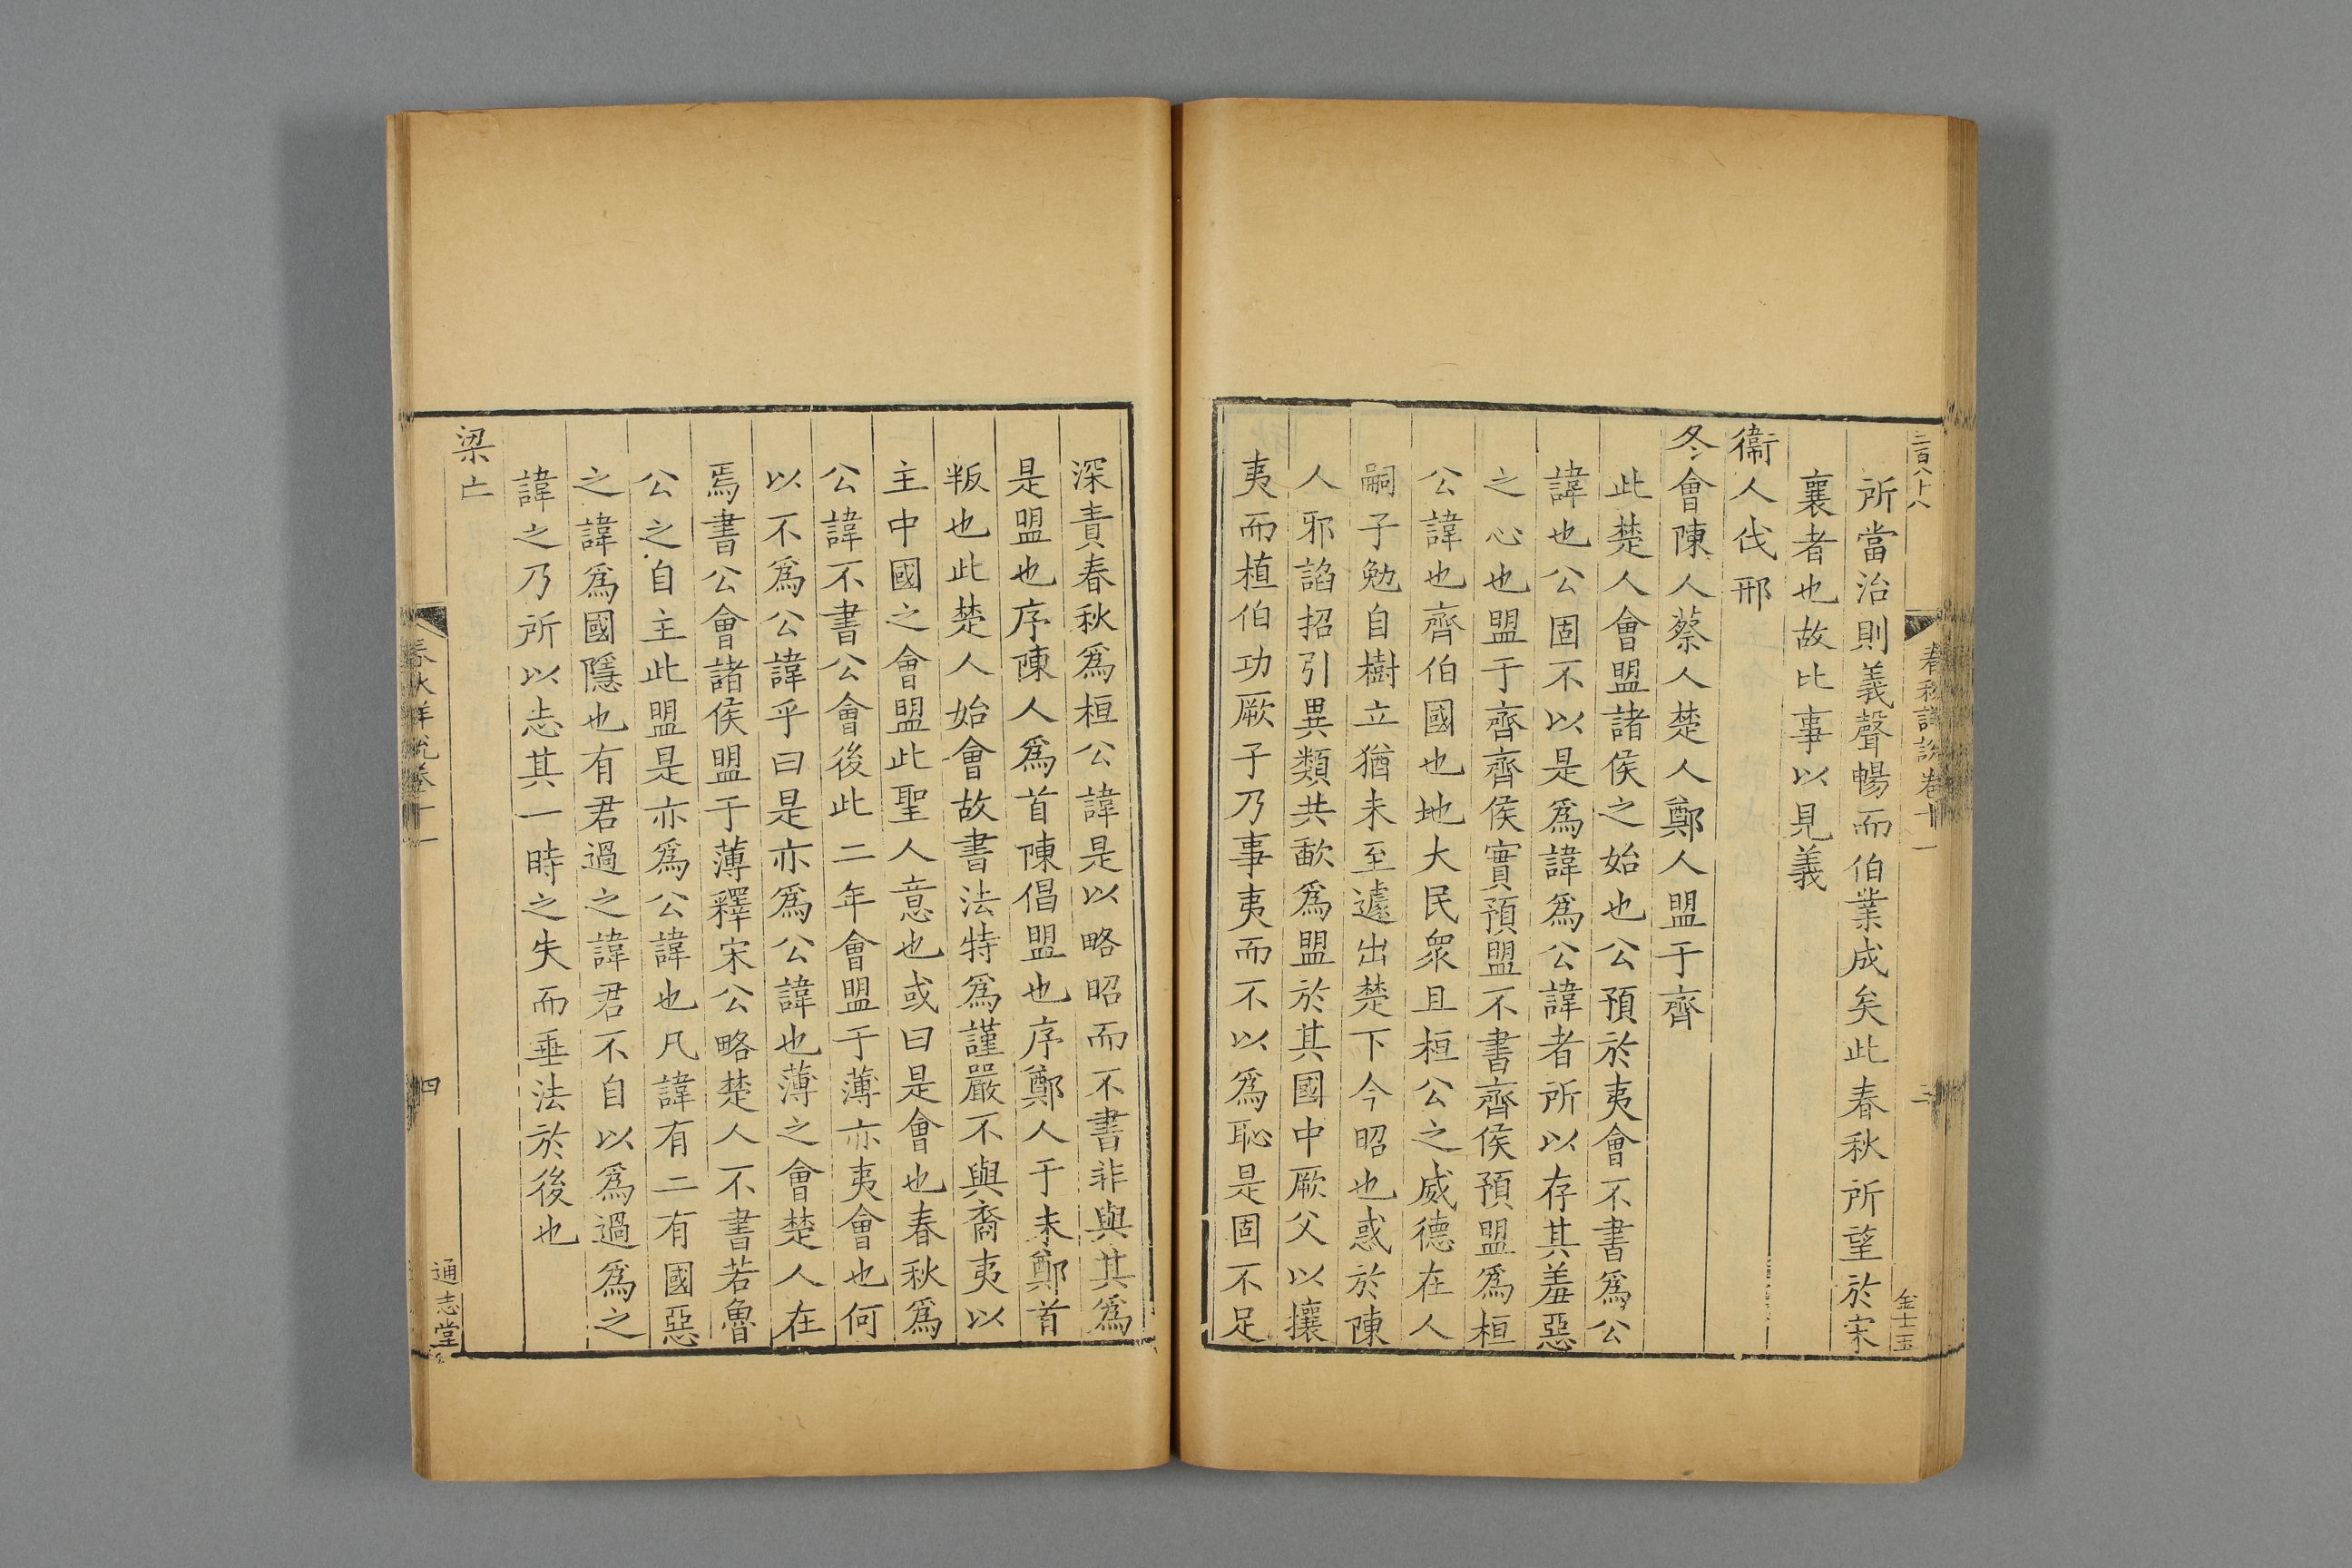 二百八十八
春秋詳說卷十一
三
金士玉
所當治則義聲暢而伯業成矣此春秋所望於宋
襄者也故比事以見義
衞人伐邢
冬會陳人蔡人楚人鄭人盟于齊
此楚人會盟諸侯之始也公預於夷會不書爲公
諱也公固不以是爲諱爲公諱者所以存其羞惡
之心也盟于齊齊侯實預盟不書齊侯預盟爲桓
公諱也齊伯國也地大民衆且桓公之威德在人
嗣子勉自樹立猶未至遽出楚下今昭也惑於陳
人邪謟招引異類共歃爲盟於其國中厥父以攘
夷而植伯功厥子乃事夷而不以爲恥是固不足
深責春秋爲桓公諱是以略昭而不書非與其爲
是盟也序陳人爲首陳倡盟也序鄭人于末鄭首
叛也此楚人始會故書法特爲謹嚴不與裔夷以
主中國之會盟此聖人意也或曰是會也春秋爲
公諱不書公會後此二年會盟于薄亦夷會也何
以不爲公諱乎曰是亦爲公諱也薄之會楚人在
焉書公會諸侯盟于薄釋宋公略楚人不書若魯
公之自主此盟是亦爲公諱也凡諱有二有國惡
之諱爲國隱也有君過之諱君不自以爲過爲之
諱之乃所以志其一時之失而垂法於後也
梁亡
春秋詳說卷十一
四
通志堂